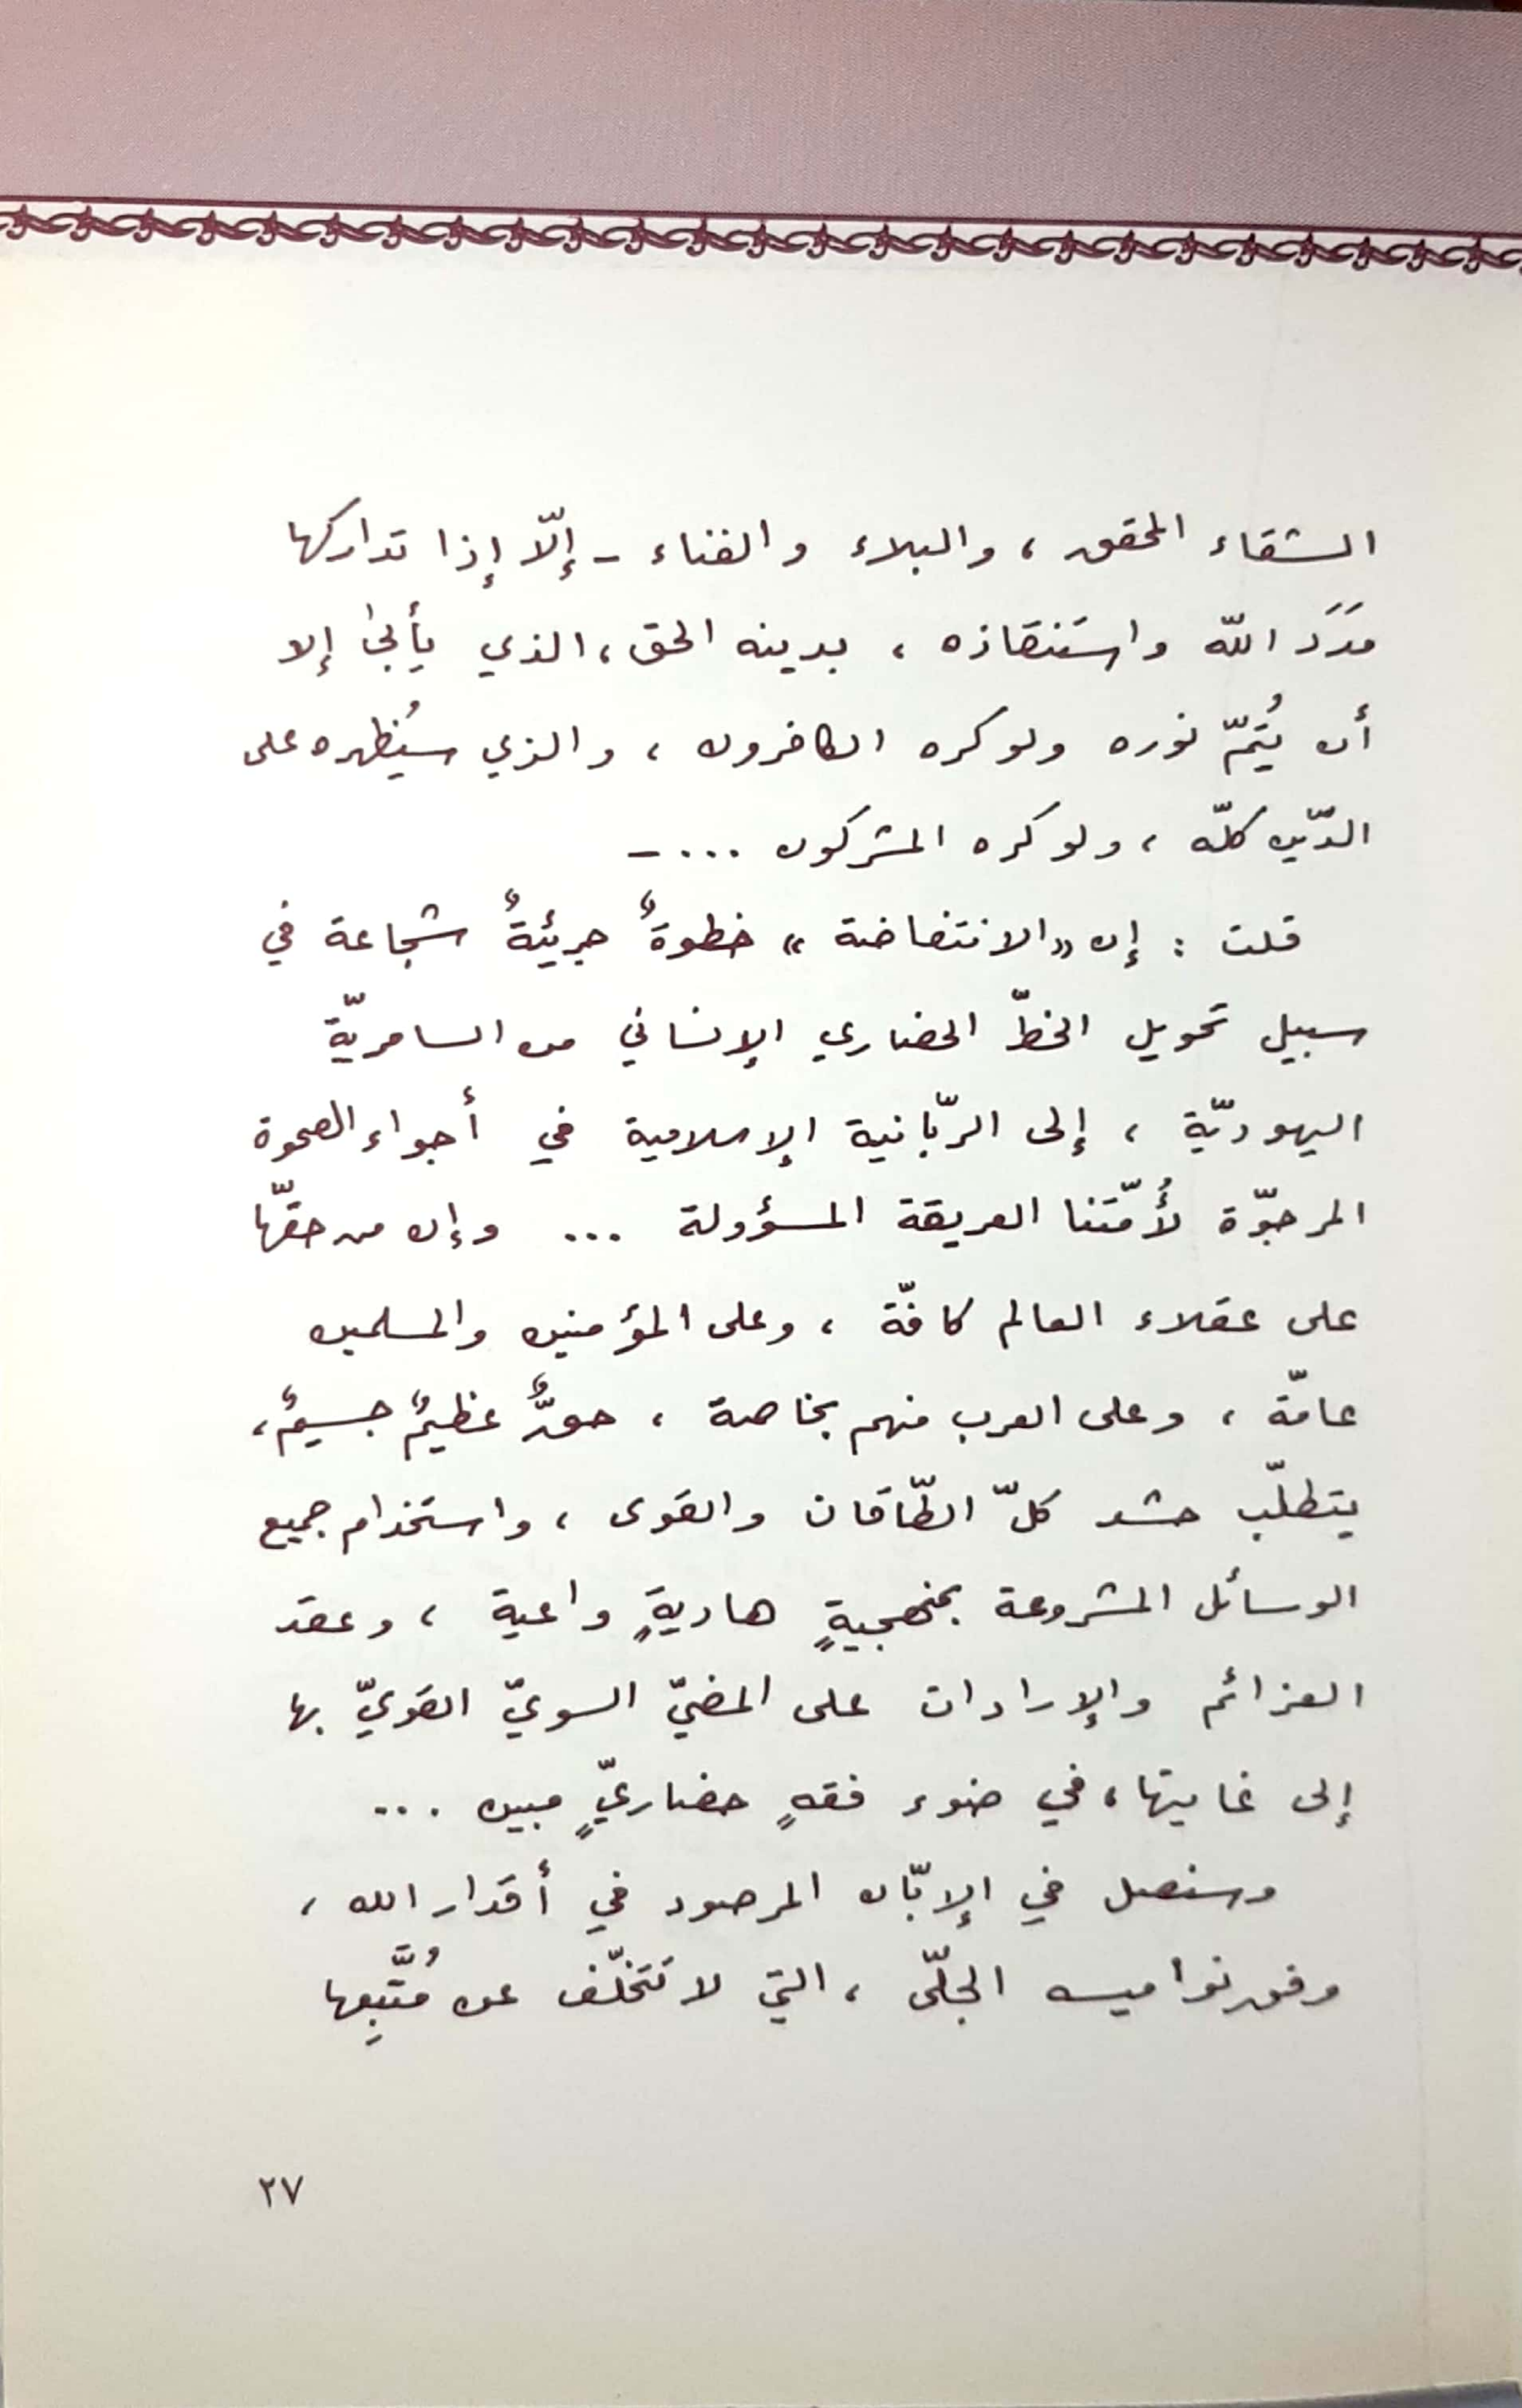 الشقاء المحقق ، والبلاء والفناء - إلّا إذا تداركها
مَدَدَ اللّه واستنقاذه ، بدينه الحق ، الذي يأبىٰ إلا
أن يُتمّ نوره ولو كره الكافرون ، والذي سيُظهره على
الدّين كلّه ، ولو كره المشركون ... -
قلت : إن «الانتفاضة» خطوةٌ جريئةٌ شجاعة في
سبيل تحويل الخطّ الحضاري الإنساني من السامريّة
اليهوديّة ، إلى الرّبّانية الإسلامية في أجواء الصحوة
المرجوّة لأُمّتنا العريقة المسؤولة ... وإن من حقّها
على عقلاء العالم كافّة ، وعلى المؤمنين والمسلمين
عامّة ، وعلى العرب منهم بخاصة ، حقٌّ عظيمٌ جسيمٌ ،
يتطلّب حشد كلّ الطّاقات والقوى ، واستخدام جميع
الوسائل المشروعة بمنهجيةٍ هاديةٍ واعية ، وعقد
العزائم والإرادات على المضيّ السويّ القويّ بها
إلى غايتها ، في ضوء فقهٍ حضاريٍّ مبين ...
وسنصل في الإبّان المرصود في أقدار الله ،
وفق نواميسه الجلّى ، التي لا تتخلّف عن مُتَّبِعِها
٢٧